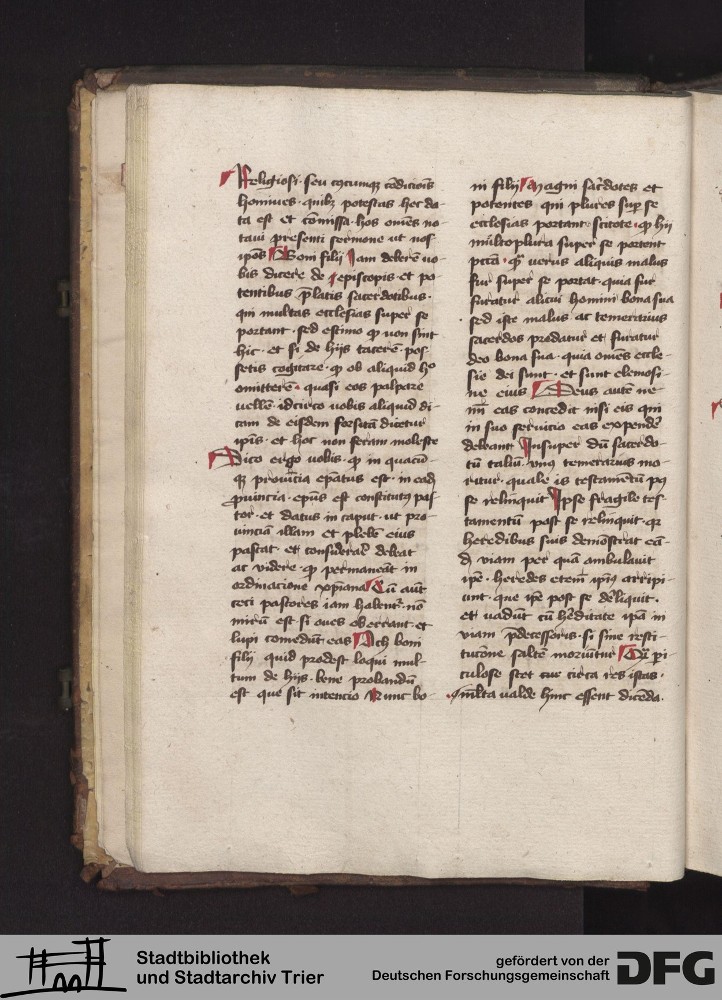 Religiosi · seu cuͥcumqꝫ cōdicioīs
homines · quibꝫ potestas hec da-
ta est et cōmissa · hos om̄es no-
taui presenti sermone ut nos
ipōs Boni filij Jam deberē uo-
bis dicere de episcopis · et po-
tentibus p̄latis sacerdotibus ·
qui multas ecclesias super se
portant · sed estimo ꝙ non sint
hic · et si de hijs tacerē · pos-
setis cogitare · ꝙ ob aliquid hͦ
omitterē · quasi eos palpare
vellē · idcirco vobis aliquid di-
cam de eisdem forsitā dicetur
ip̄is · et hoc non feram moleste
Dico ergo vobis · ꝙ in quacū-
qꝫ prouīcia ep̄atus est · in eadꝫ
ꝓuincia · ep̄us est constitutꝰ pas-
tor · et datus in caput · ut pro-
uinciā illam et plebē eius
pascat · et considerat̓ debeat
ac videre · ꝙ permaneāt in
ordinacione xp̄iana Cū aūt
ceci pastores iam habent̓ · nō
mirū est · si oues oberrant · et
lupi comedūt eas Ach boni
filij quid prodest loqui mul-
tum de hijs · bene probandū
est que sit intencio Nunc bo-
ni filij Magni sac̓dotes et
potentes qui plures suꝑ se
ecclesias portant · scitote · ꝙ hij
multo plura super se portent
pctā · qͣ verus aliquis malus
fur super se portat · quia fur
furatur alicui homini bona sua
sed iste malus ac temerarius
sacerdos prodatur et furatur
deo bona sua · quia om̄es eccle-
sie dei sunt · et sunt elemosi-
ne eius Deus autē ne-
mī eas concedit nisi eis qui
in suo seruicio eas expendē
debeant Insuper dū sacerdo-
tū taliū vnꝰ temerarius mo-
ritur · quale is testamētū pꝰ
se relinquit Ipse fragile tes-
tamentū post se relinquit · qꝛ
heredibus suis demōstrat eā-
dꝫ viam per quā ambulauit
ipē · heredes etem̄ ipiꝰ arripi-
unt · que ipē post se dēliquit ·
et vadūt cū hēditate ipā in
viam p̄decessoris · si sine resti-
tucione saltē moriūtur Cū ꝑi-
culose stet cur circa res istas ·
multa valde hinc essent dicēda ·
Stadtbibliothek
und Stadtarchiv Trier
gefördert von der
Deutschen Forschungsgemeinschaft
DFG